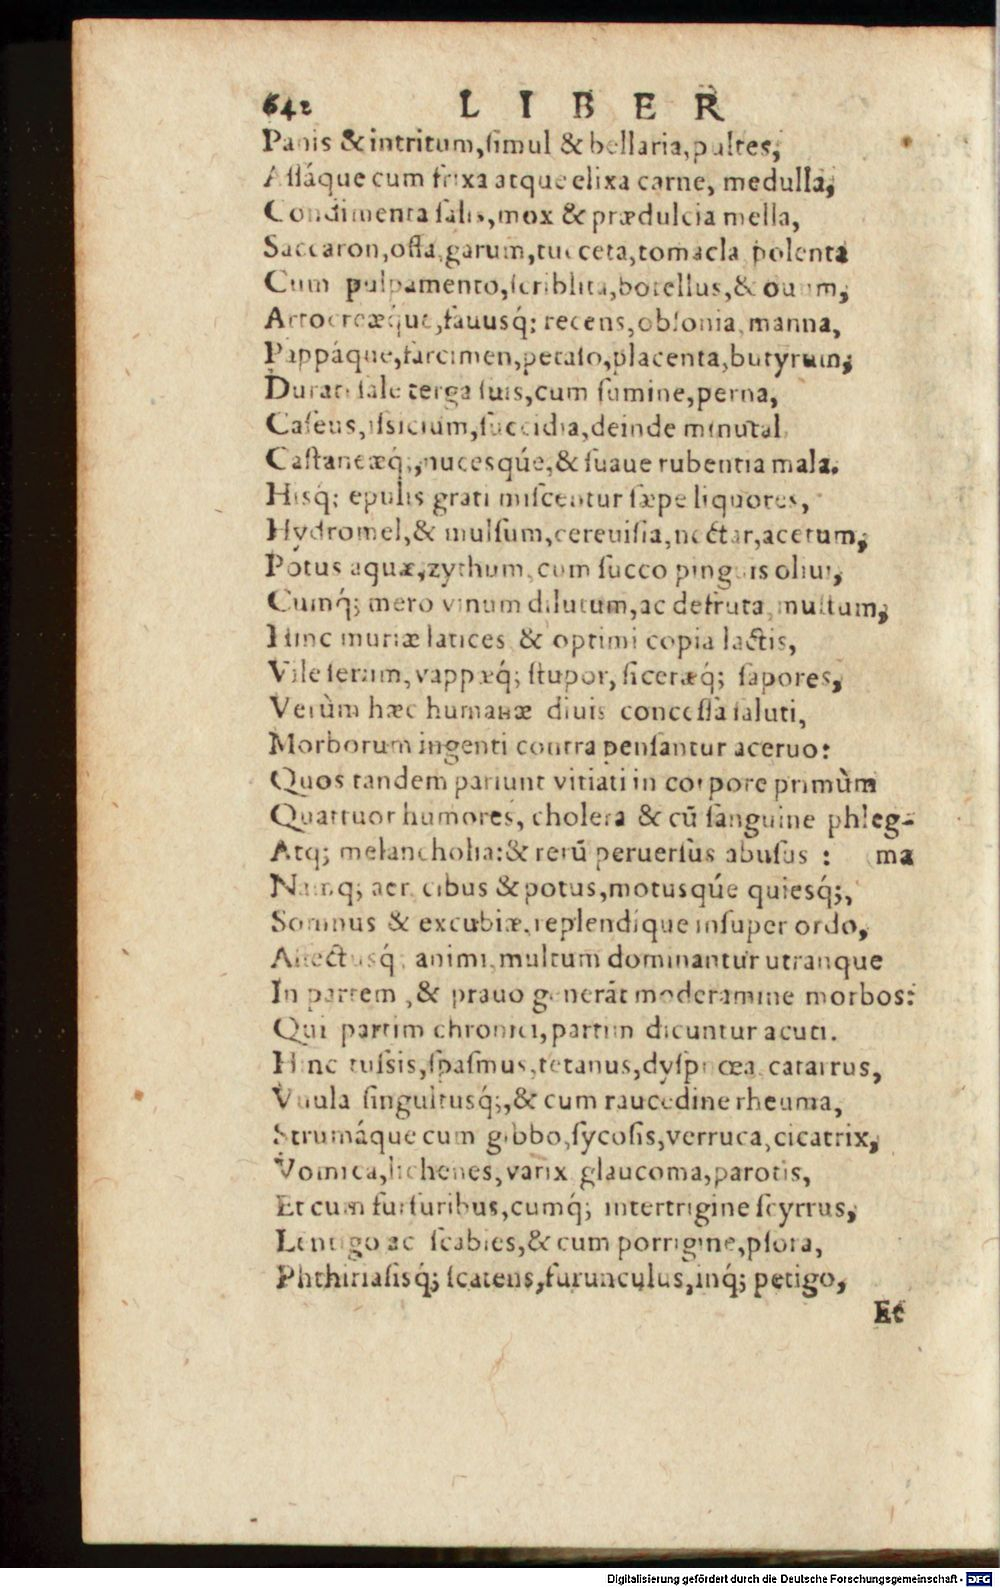 642 LIBER
Panis & intritum, ſimul & bellaria, pultes,
Aſſáque cum frixa atque elixa carne, medulla,
Condimenta ſalis, mox & prædulcia mella,
Saccaron, offa, garum, tucceta, tomacla polenta
Cum pulpamento, ſcriblita, botellus, & ouum,
Artocreæq́ue, fauusq́; recens, obſonia, manna,
Pappáque, farcimen, petaſo, placenta, butyrum,
Durati ſale terga ſuis, cum ſumine, perna,
Caſeus, iſsicium, ſuccidia, deinde minutal
Caſtaneæq́;, nucesqúe, & ſuaue rubentia mala.
Hisq́; epulis grati miſcentur ſæpe liquores,
Hydromel, & mulſum, cereuiſia, nectar, acetum,
Potus aquæ, zythum, cum ſucco pinguis oliui,
Cumq́; mero vinum dilutum, ac defruta, multum,
Hinc muriæ latices & optimi copia lactis,
Vile ſerum, vappæq́; ſtupor, ſiceræq́; ſapores,
Verùm hæc humanæ diuis conceſſa ſaluti,
Morborum ingenti contra penſantur aceruo:
Quos tandem pariunt vitiati in corpore primùm
Quattuor humores, cholera & cū ſanguine phleg-
Atq; melancholia: & rerū peruerſus abuſus : (ma
Namq; aer cibus & potus, motusqúe quiesq́;,
Somnus & excubiæ, replendíque inſuper ordo,
Affectusq́; animi, multum dominantur utranque
In partem, & prauo generāt moderamine morbos:
Qui partim chronici, partim dicuntur acuti.
Hinc tuſsis, ſpaſmus, tetanus, dyſpnœa catarrus,
Vuula ſingultusq́;, & cum raucedine rheuma,
Strumáque cum gibbo, ſycoſis, verruca, cicatrix,
Vomica, lichenes, varix glaucoma, parotis,
Et cum furfuribus, cumq́; intertrigine ſcyrrus,
Lentigo ac ſcabies, & cum porrigine, pſora,
Phthiriaſisq́; ſcatens, furunculus, inq́; petigo,
Et
Digitalisierung gefördert durch die Deutsche Forschungsgemeinschaft - DFG